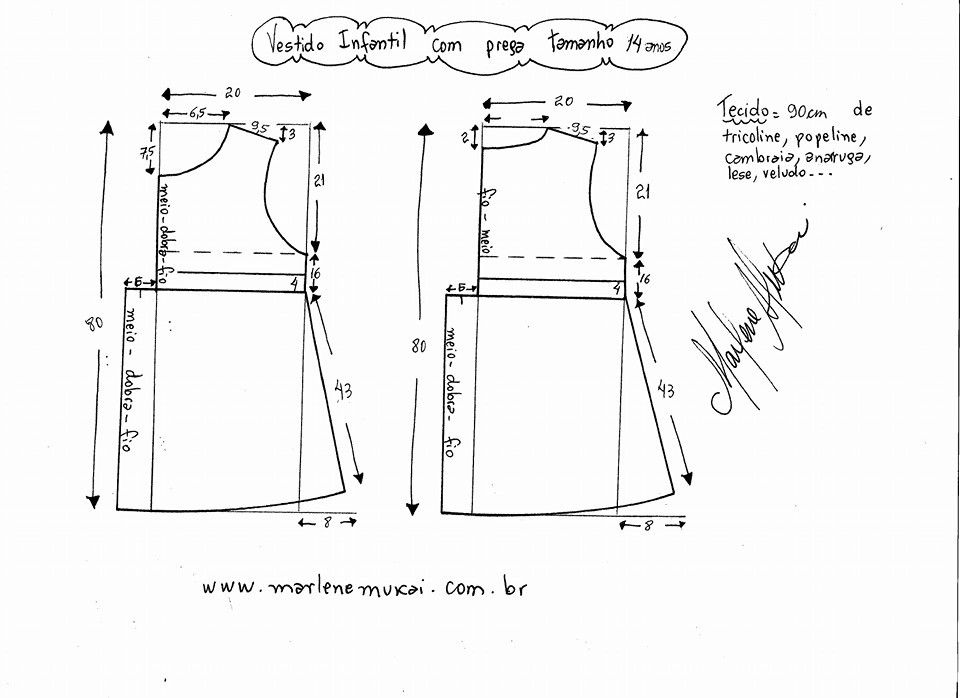 Vestido Infantil com prega tamanho 14 anos
20
6,5
9,5
3
7,5
21
meio-dobra-fio
16
4
5
80
meio-dobra-fio
43
8
20
9,5
3
2
21
fio-meio
16
4
5
80
meio-dobra-fio
43
8
Tecido = 90cm de
tricoline, popeline,
cambraia, anarruga,
lese, veludo---
Marlene Mukai.
www.marlenemukai.com.br